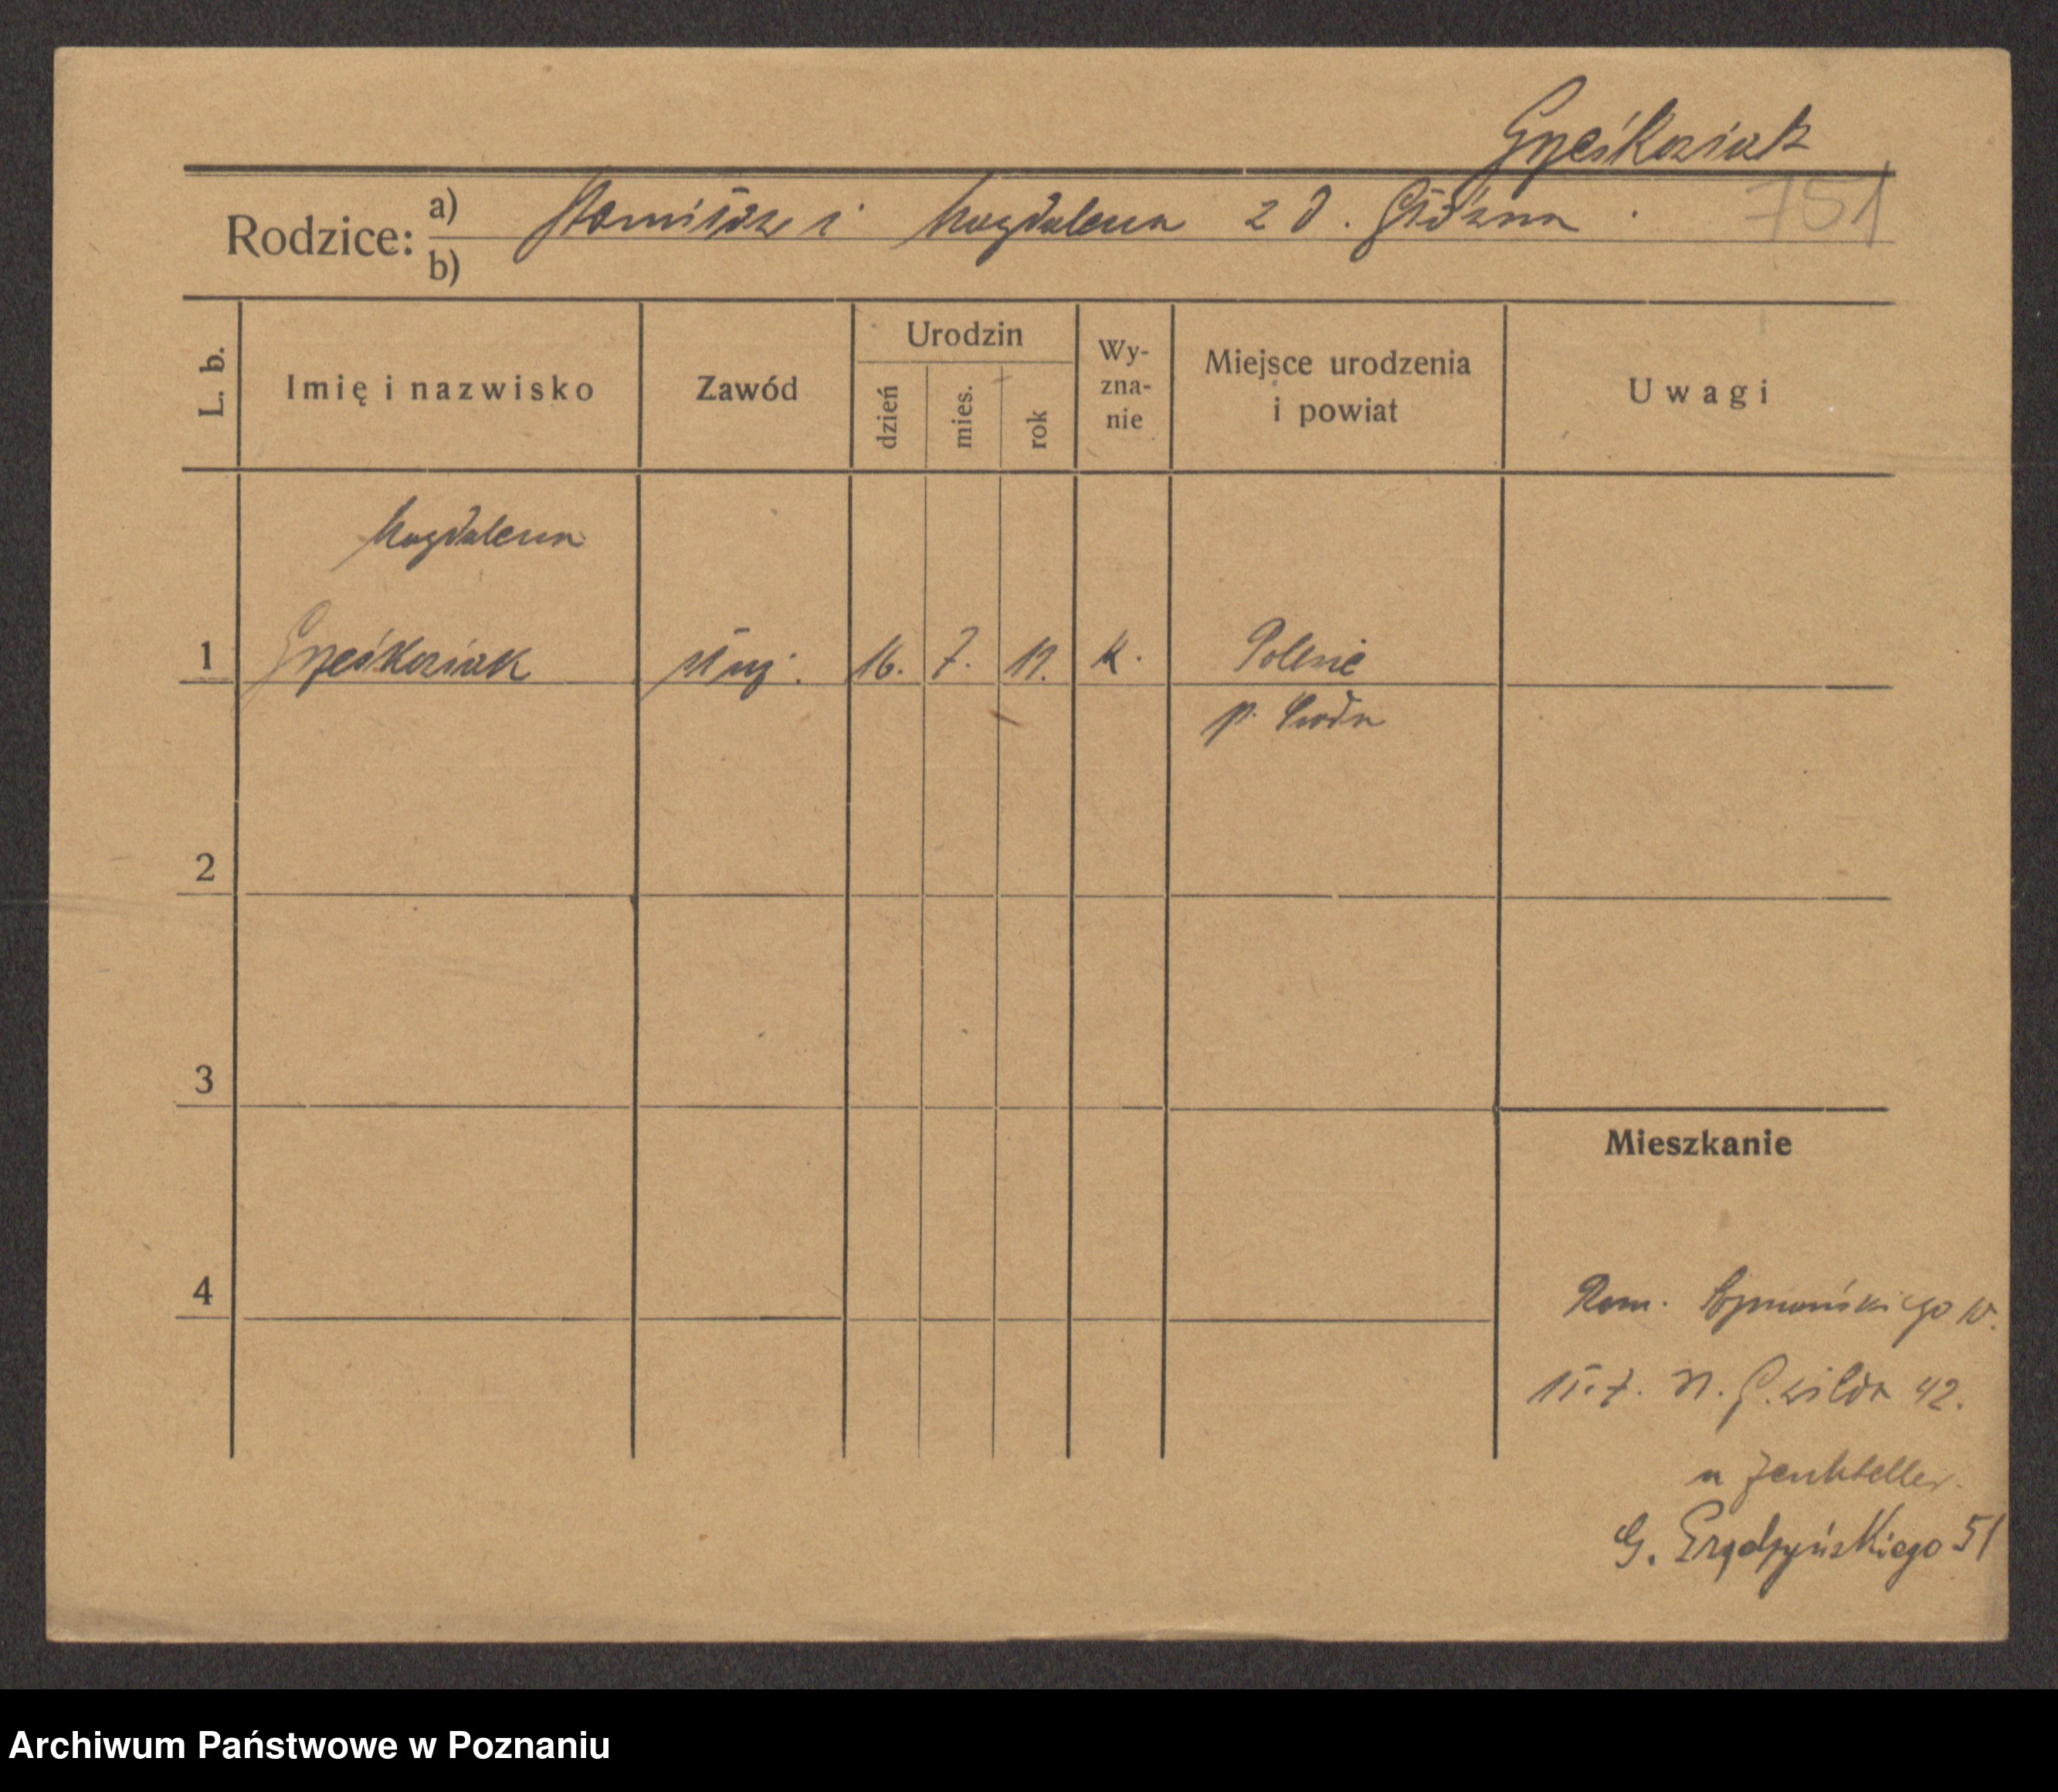 Grześkowiak
Rodzice: a) Stanisław i Magdalena z d. Główna. 751
b)
L. b. Imię i nazwisko Zawód Urodzin dzień mies. rok Wy-zna-nie Miejsce urodzenia i powiat Uwagi
Magdalena
1 Grześkowiak służ. 16. 7. K.
p. Środa
2
3
Mieszkanie
4
Rom. Szymańskiego 10.
N. G. Wilda 42.
u
G. Prądzyńskiego 51
Archiwum Państwowe w Poznaniu